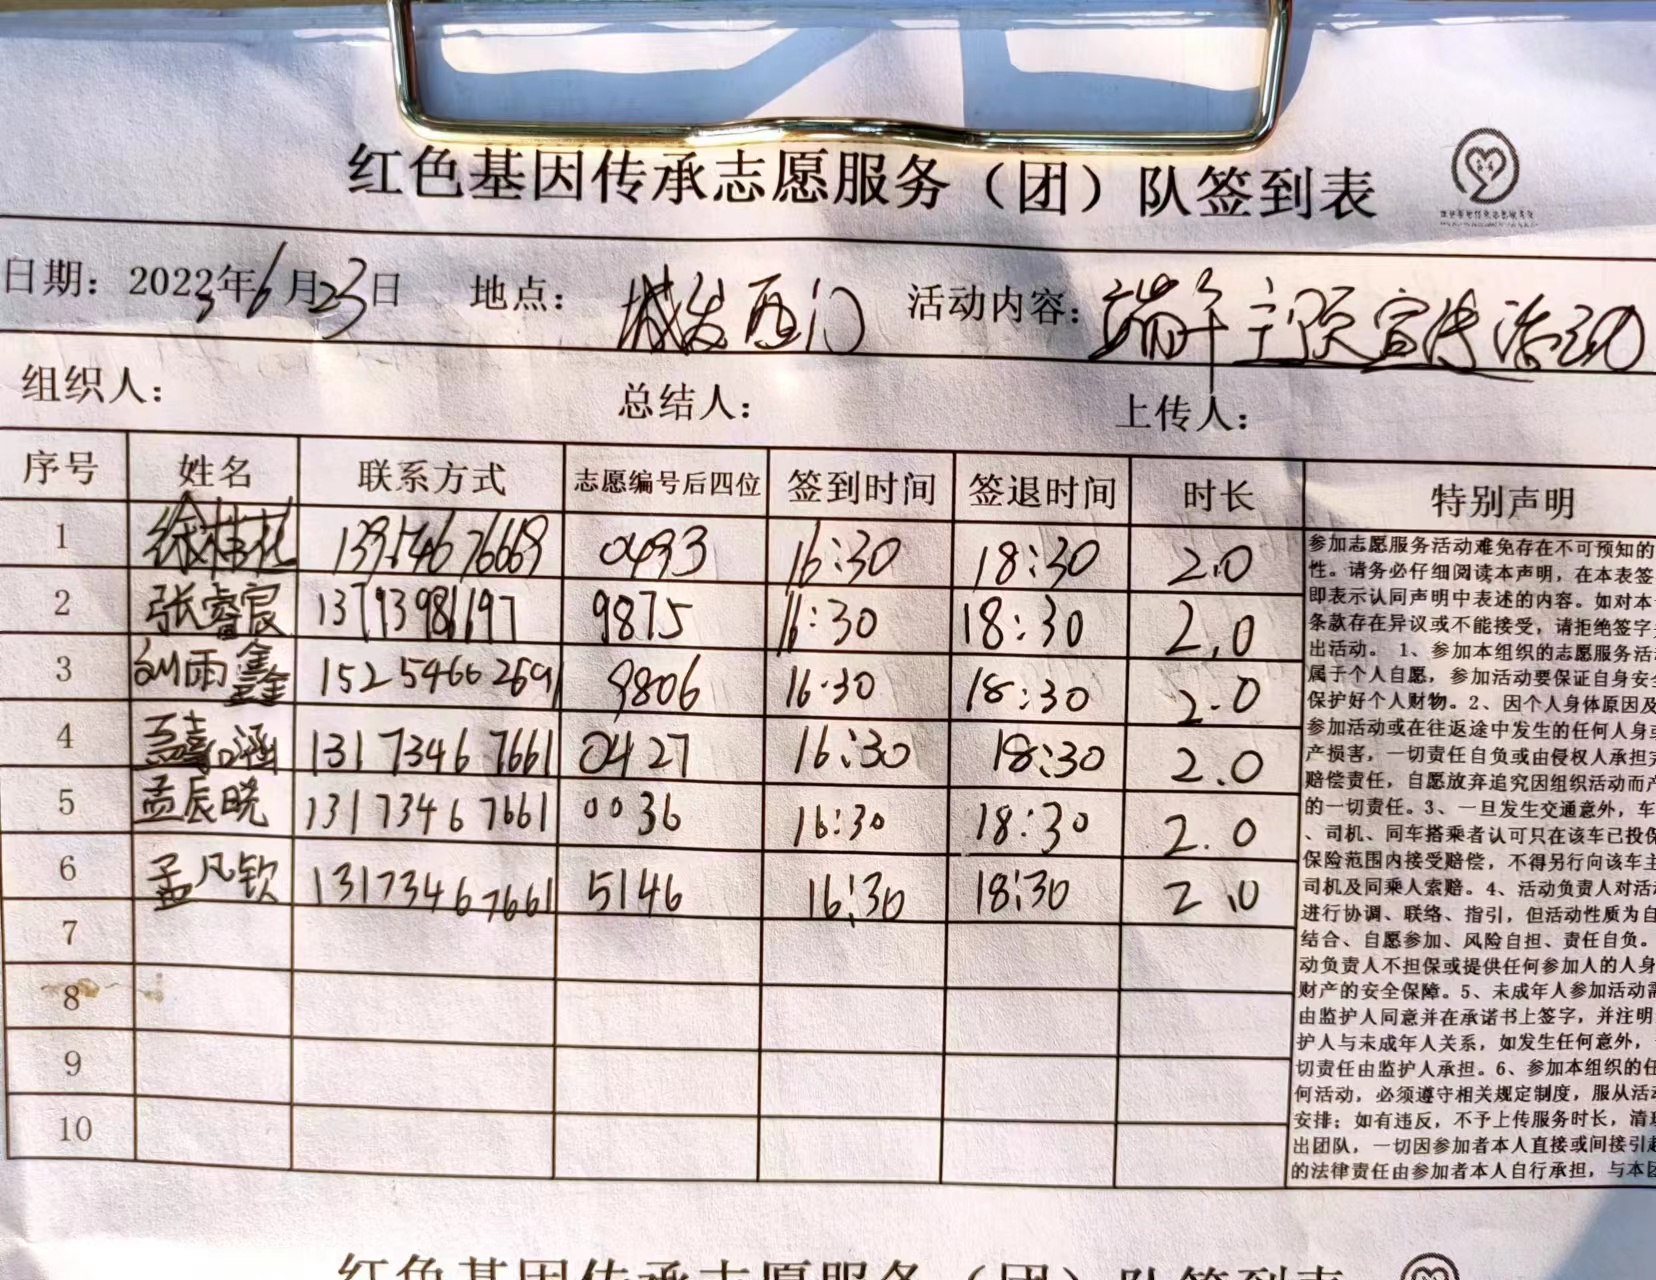 红色基因传承志愿服务（团）队签到表
日期：2023年6月23日 地点：城发西门 活动内容：端午宣传活动
组织人： 总结人： 上传人：
序号 姓名 联系方式 志愿编号后四位 签到时间 签退时间 时长 特别声明
1 徐桂花 13954676669 0493 16:30 18:30 2.0
2 张睿宸 13793981197 9875 16:30 18:30 2.0
3 刘雨鑫 15254662691 9806 16:30 18:30 2.0
4 涵 13173467661 0427 16:30 18:30 2.0
5 孟辰晓 13173467661 0036 16:30 18:30 2.0
6 孟凡钦 13173467661 5146 16:30 18:30 2.0
7
8
9
10
参加志愿服务活动难免存在不可预知的
性。请务必仔细阅读本声明，在本表签
即表示认同声明中表述的内容。如对本
条款存在异议或不能接受，请拒绝签字
出活动。 1、参加本组织的志愿服务活
属于个人自愿，参加活动要保证自身安全
保护好个人财物。2、因个人身体原因及
参加活动或在往返途中发生的任何人身或
产损害，一切责任自负或由侵权人承担
赔偿责任，自愿放弃追究因组织活动而产
的一切责任。3、一旦发生交通意外，车
、司机、同车搭乘者认可只在该车已投保
保险范围内接受赔偿，不得另行向该车主
司机及同乘人索赔。4、活动负责人对活动
进行协调、联络、指引，但活动性质为自
结合、自愿参加、风险自担、责任自负。
动负责人不担保或提供任何参加人的人身
财产的安全保障。5、未成年人参加活动需
由监护人同意并在承诺书上签字，并注明
护人与未成年人关系，如发生任何意外，
切责任由监护人承担。6、参加本组织的任
何活动，必须遵守相关规定制度，服从活动
安排；如有违反，不予上传服务时长，清
出团队，一切因参加者本人直接或间接引起
的法律责任由参加者本人自行承担，与本团
红色基因传承志愿服务（团）队签到表